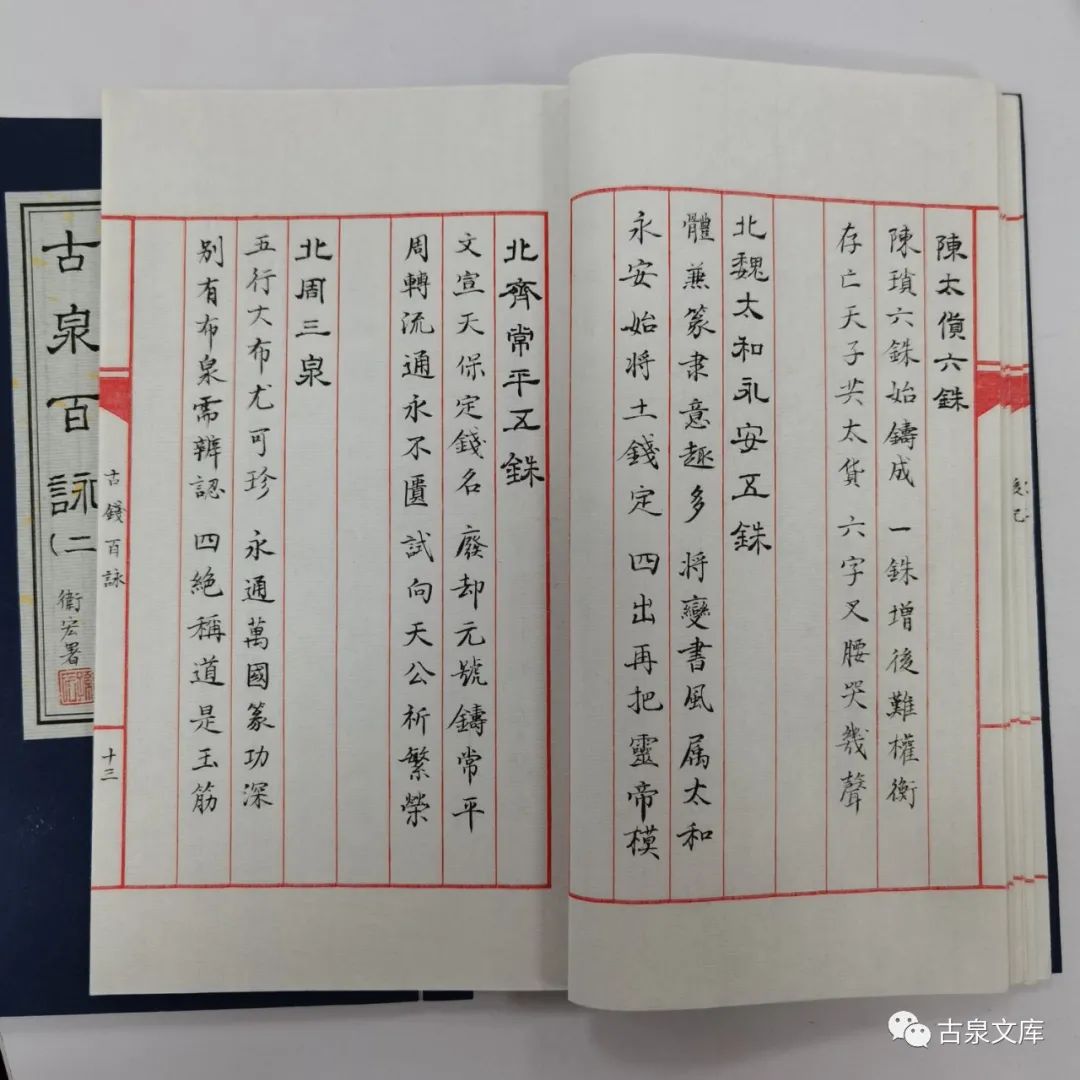 陳太貨六銖
陳瑣六銖始鑄成 一銖增後難權衡
存亡天子共太貨 六字叉腰哭幾聲
北魏太和永安五銖
體兼篆隶意趣多 将變書風属太和
永安始将土錢定 四出再把靈帝模
北齊常平五銖
文宣天保定錢名 廢却元號鑄常平
周轉流通永不匱 試向天公祈繁榮
北周三泉
五行大布尤可珍 永通萬國篆功深
别有布泉需辨認 四絕稱道是玉筋
古錢百詠
十三
古泉百詠(二)
衛宏署
古泉文库